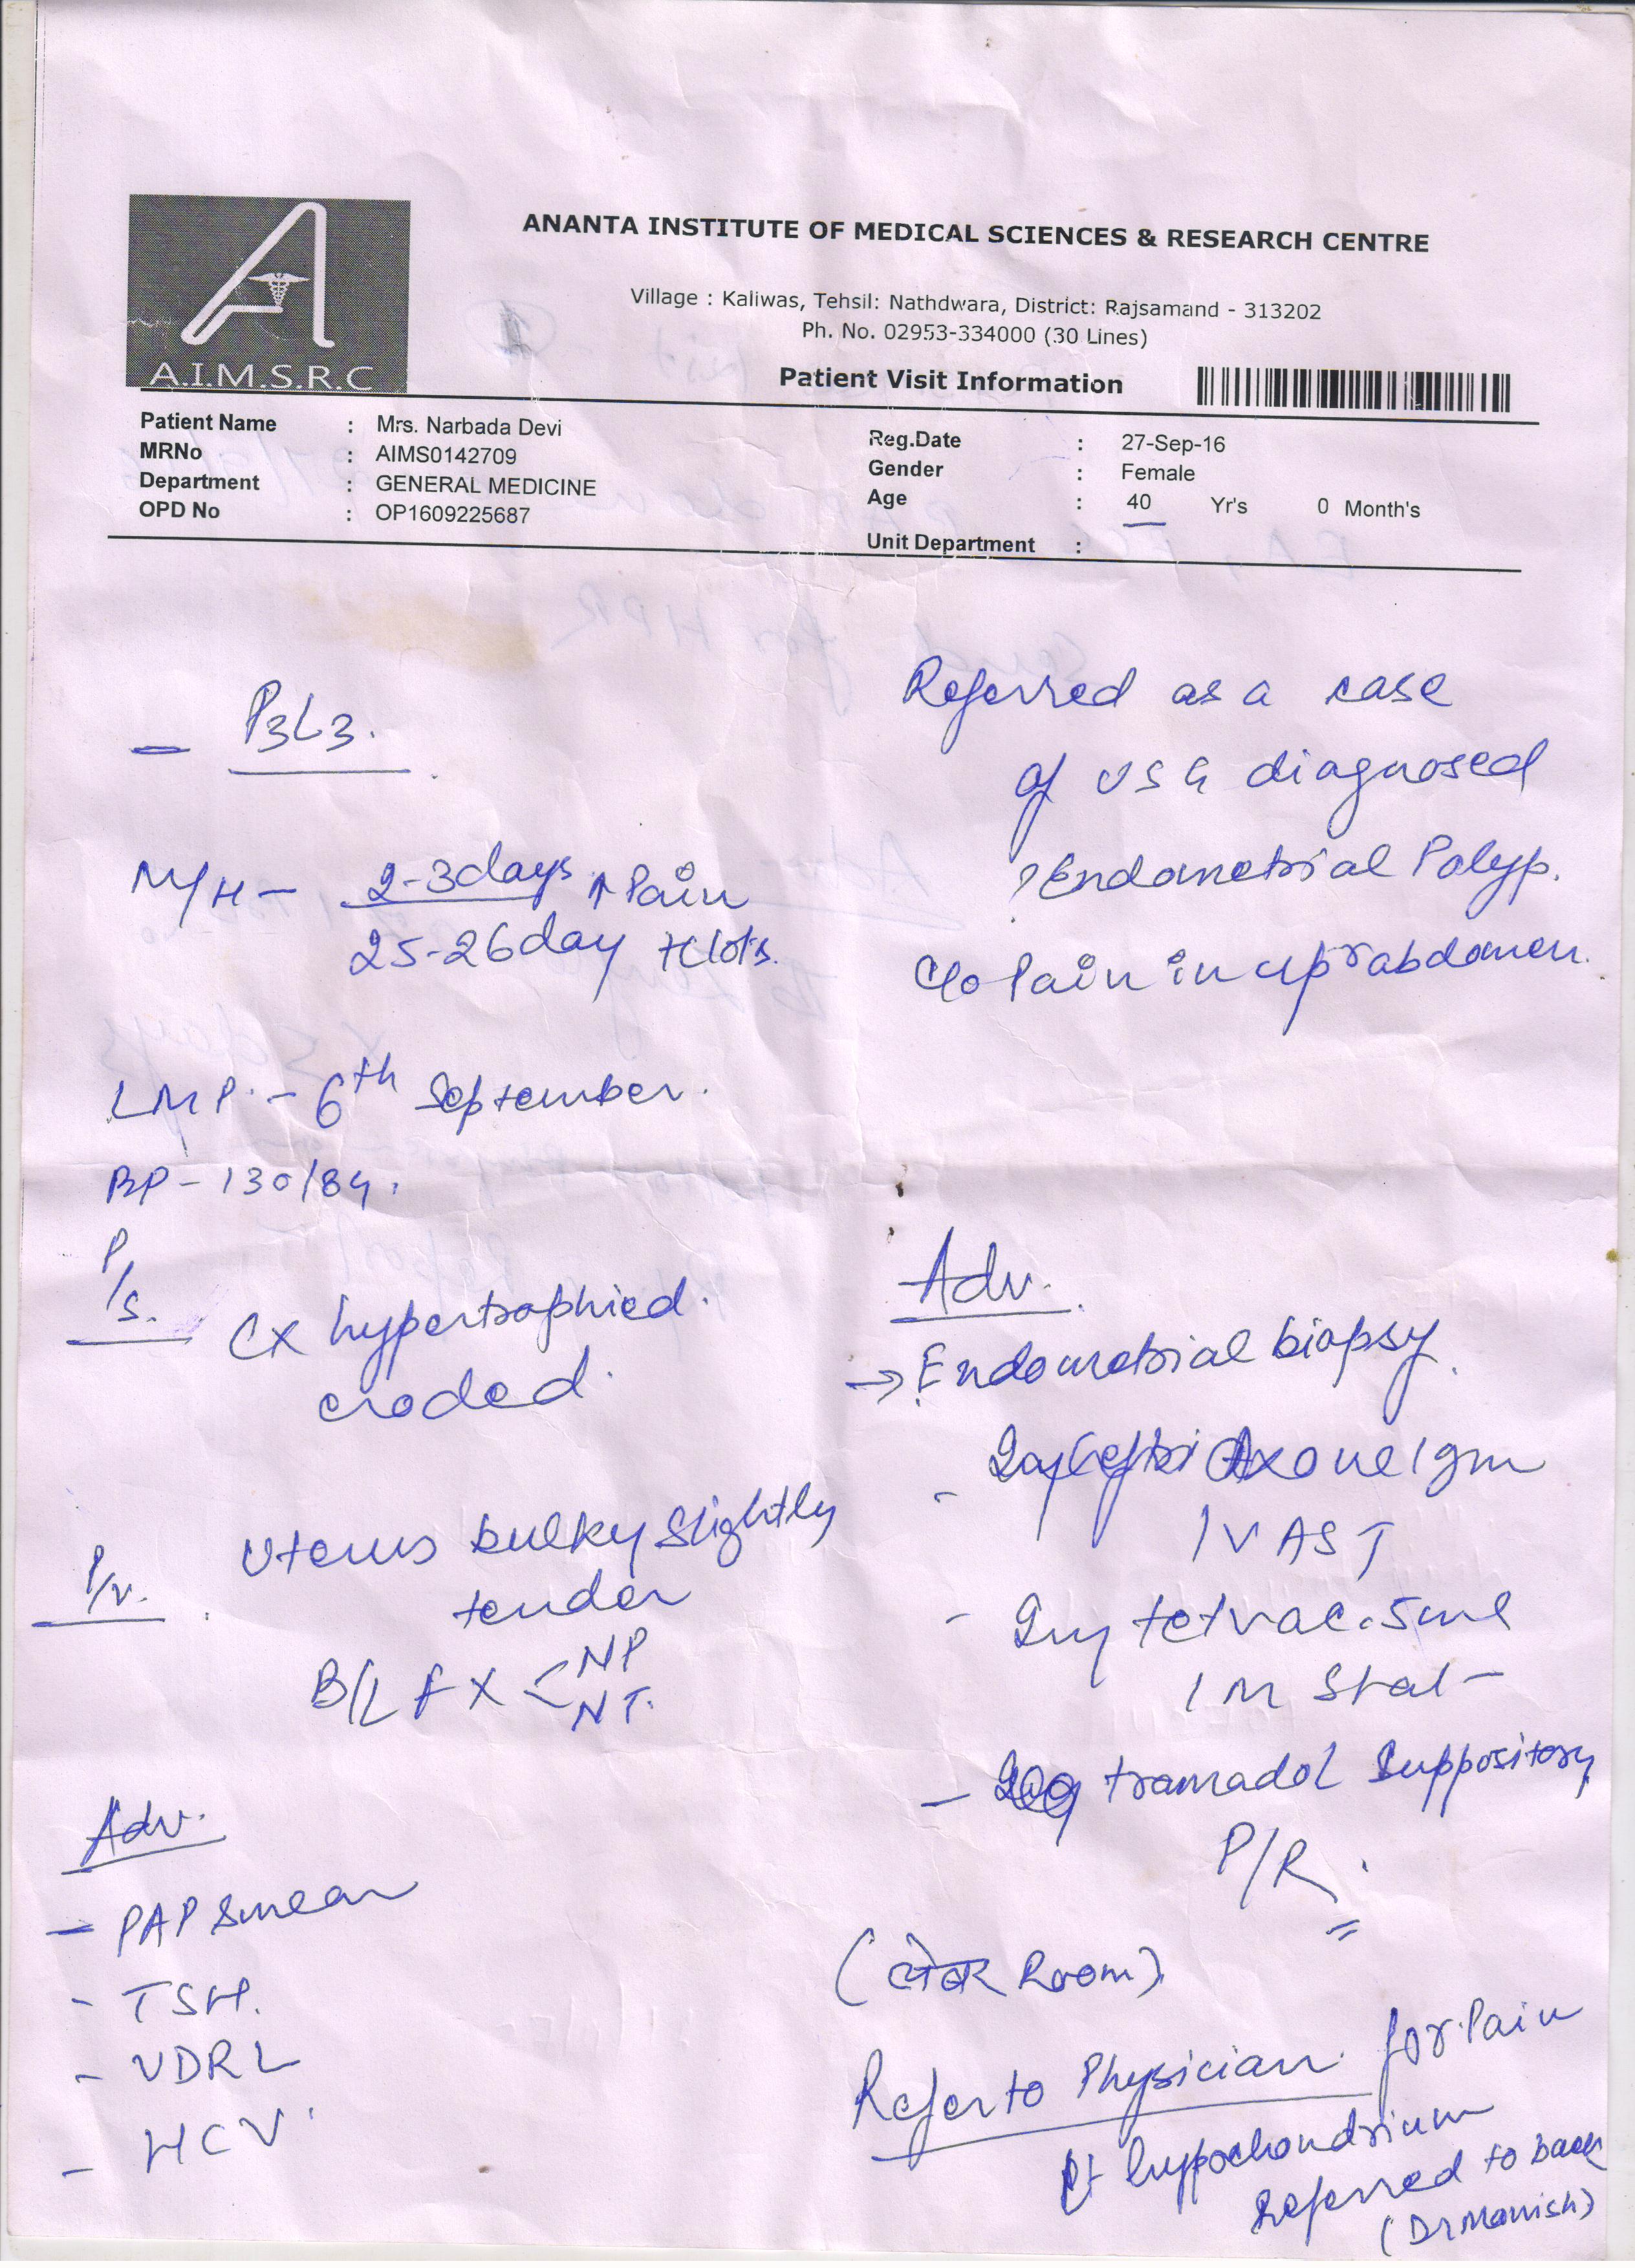 ANANTA INSTITUTE OF MEDICAL SCIENCES & RESEARCH CENTRE
Village : Kaliwas, Tehsil: Nathdwara, District: Rajsamand - 313202
Ph. No. 02953-334000 (30 Lines)
A.I.M.S.R.C
Patient Visit Information
Patient Name : Mrs. Narbada Devi
MRNo : AIMS0142709
Department : GENERAL MEDICINE
OPD No : OP1609225687
Reg.Date : 27-Sep-16
Gender : Female
Age : 40 Yr's 0 Month's
Unit Department :
- P3L3.
M/H - 2-3days ↑ Pain
25-26day + Clots.
LMP. - 6th September.
BP - 130/84.
P/S. Cx hypertrophied.
eroded.
P/V. Uterus bulky slightly
tender
B/L Fx < NP
NT.
Adv.
- PAP Smear
- TSH.
- VDRL
- HCV.
Referred as a case
of USG diagnosed
?Endometrial Polyp.
C/o Pain in upr abdomen.
Adv.
→ Endometrial biopsy.
- Inj Ceftriaxone 1gm
IV AST
- Inj tetvac .5ml
IM Stat
- tramadol Suppository
P/R.
(लेबर Room)
Refer to Physician for Pain
Rt hypochondrium
Referred to back
(Dr Manish)